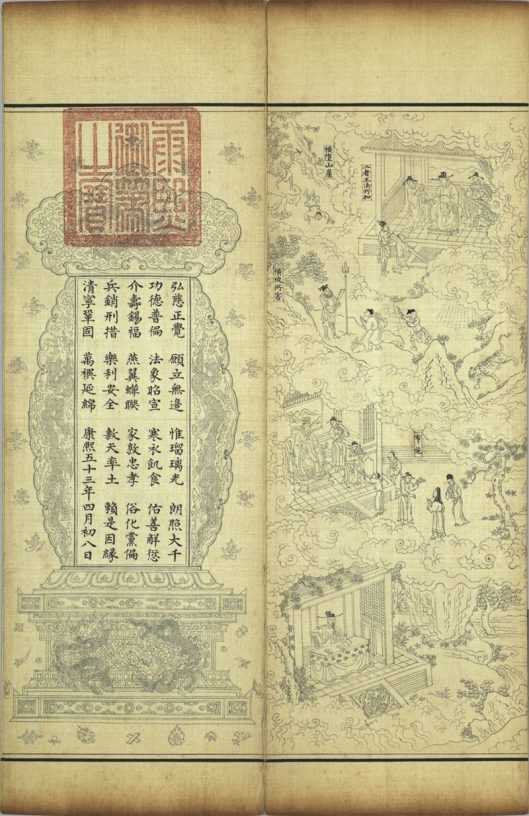 橫墮山崖
弘慈正覺 願立無邊 惟瑠璃光 朗照大千
功德普徧 法象昭宣 寒衣飢食 佑善觧愆
介壽錫福 燕翼蟬聨 家敦忠孝 俗化黨偏
兵銷刑措 樂利安全 敷天率土 賴是因縁
清寧鞏固 萬禩延綿 康熙五十三年四月初八日
康熙御筆之寶